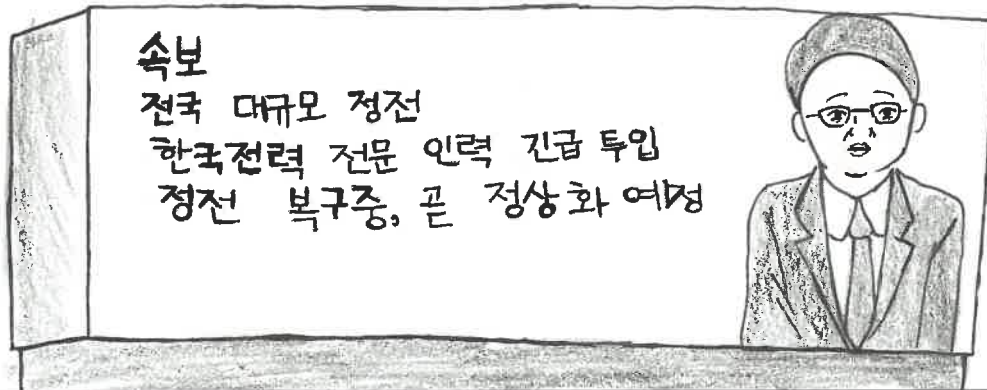 속보
전국 대규모 정전
한국전력 전문 인력 긴급 투입
정전 복구중, 곧 정상화 예정